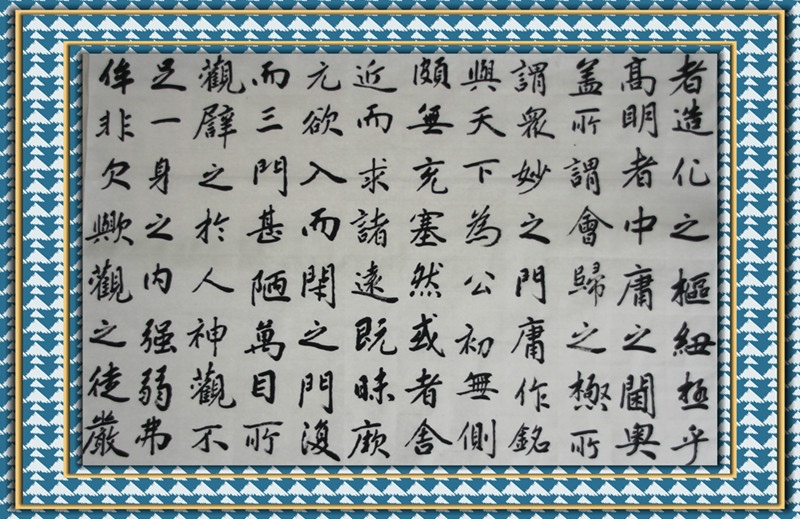 者造化之樞紐極乎
高明者中庸之閫奥
盖所謂會歸之極所
謂衆妙之門庸作銘
與天下為公初無側
頗無充塞然或者舍
近而求諸遠既昧厥
元欲入而閉之門復
而三門甚陋萬目所
觀譬之於人神觀不
足一身之内强弱弗
侔非欠歟觀之徒嚴